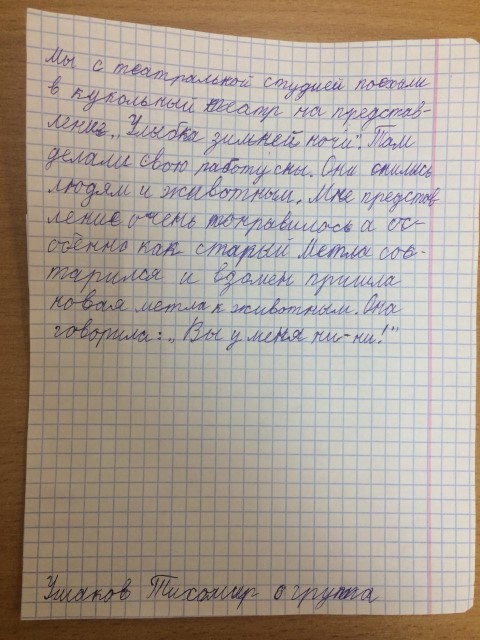 Мы с театральной студией поехали
в кукольный театр на представ-
ление „Улыбка зимней ночи". Там
делали свою работу сны. Они снились
людям и животным. Мне представ
ление очень понравилось а ос-
обенно как старый Метла сос-
тарился и взомен пришла
новая метла к животным. Она
говорила: „Вы у меня ни-ни!"
Ушаков Тихомир 0 группа